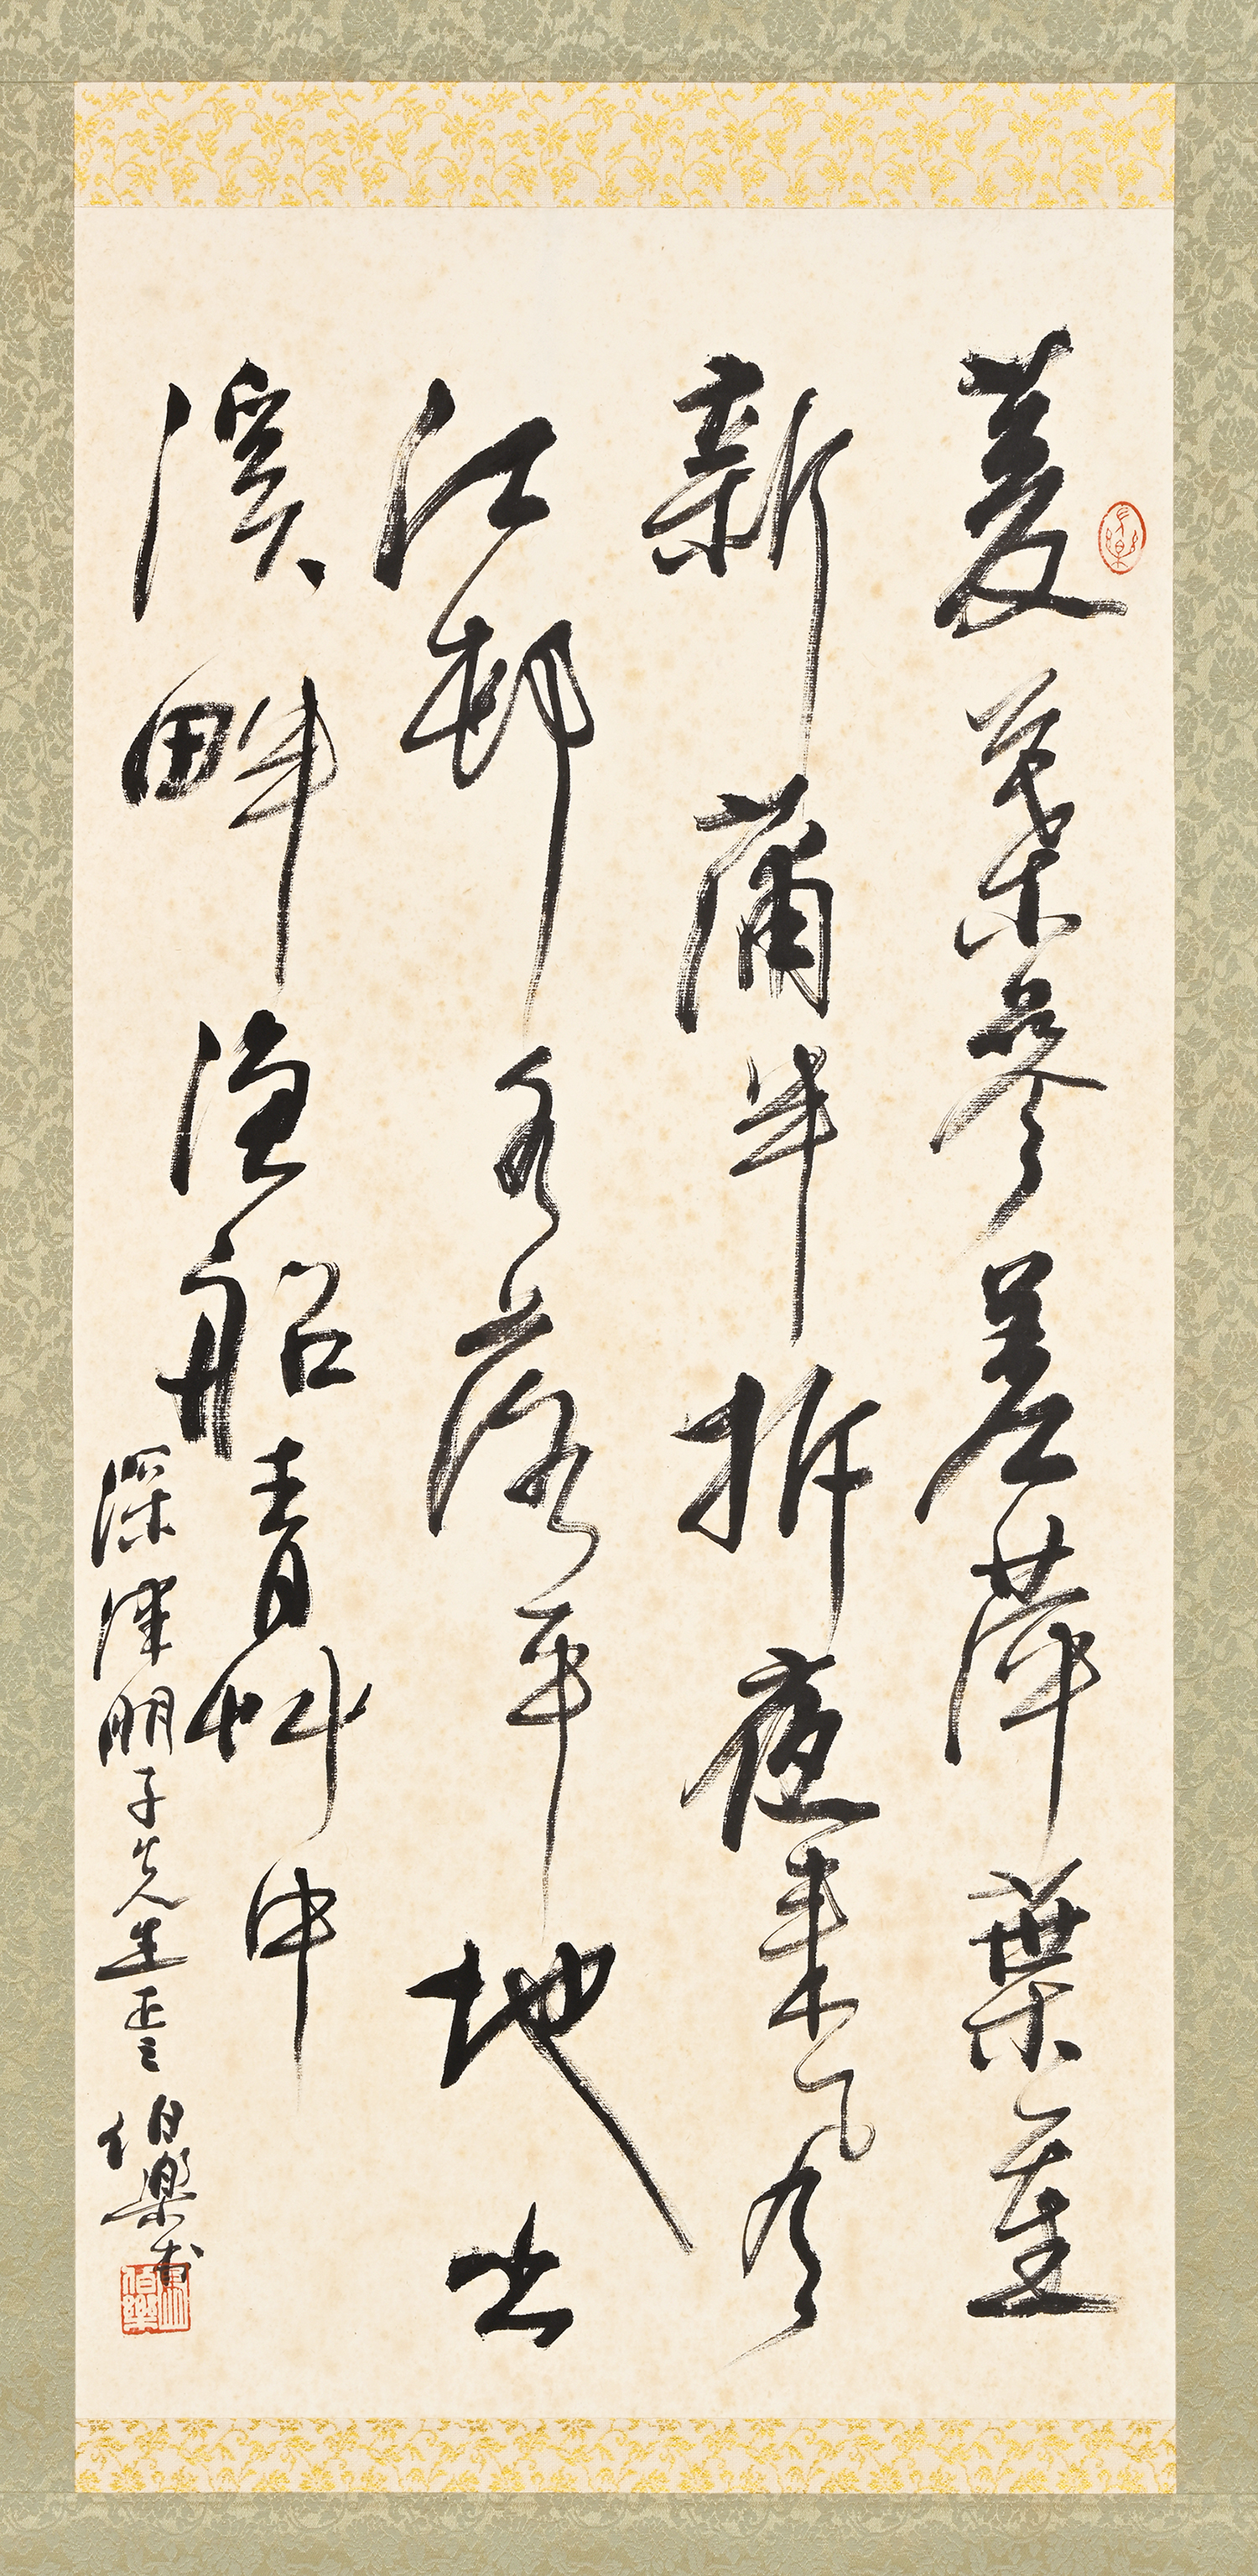 菱葉參差萍葉重
新蒲半折夜來風
江邨水落平地出
溪畔漁船青艸中
深津明子先生正之 伯樂書